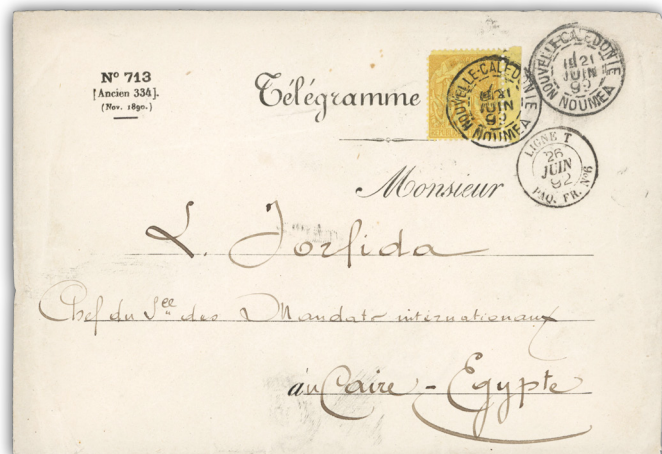 Nº 713
[Ancien 334].
(Nov. 1890.)
Télégramme
NOUVELLE-CALEDONIE
21
JUIN
92
NOUMEA
NOUVELLE-CALEDONIE
21
JUIN
92
NOUMEA
LIGNE T
26
JUIN
92
PAQ. FR. Nº6
Monsieur
L. Jorfida
Chef du Sce des Mandats internationaux
au Caire - Egypte